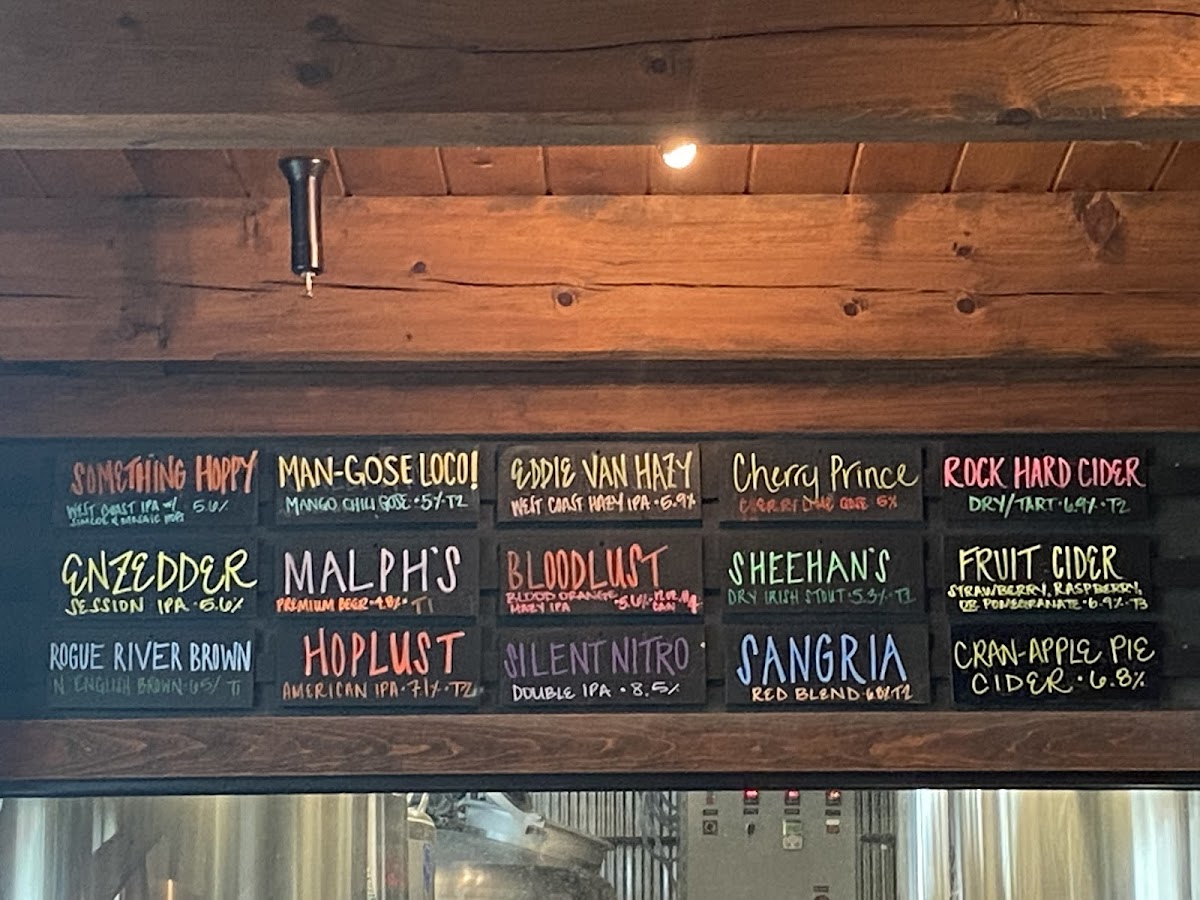 SOMETHING HOPPY
WEST COAST IPA W/ 5.6%
SIMCOE & MOSAIC HOPS
MAN-GOSE LOCO!
MANGO CHILI GOSE • 5% • T2
EDDIE VAN HAZY
WEST COAST HAZY IPA • 5.9%
Cherry Prince
CHERRY LIME GOSE 5%
ROCK HARD CIDER
DRY/TART • 6.9% • T2
ENZEDDER
SESSION IPA • 5.6%
MALPH'S
PREMIUM BEER • 4.8% • T1
BLOODLUST
BLOOD ORANGE
HAZY IPA
SHEEHAN'S
DRY IRISH STOUT • 5.3% •
FRUIT CIDER
STRAWBERRY, RASPBERRY,
OR POMEGRANATE • 6.9% • T3
ROGUE RIVER BROWN
N ENGLISH BROWN T1
HOPLUST
AMERICAN IPA • 7.1% • T2
SILENT NITRO
DOUBLE IPA • 8.5%
SANGRIA
RED BLEND T2
CRAN-APPLE PIE
CIDER • 6.8%